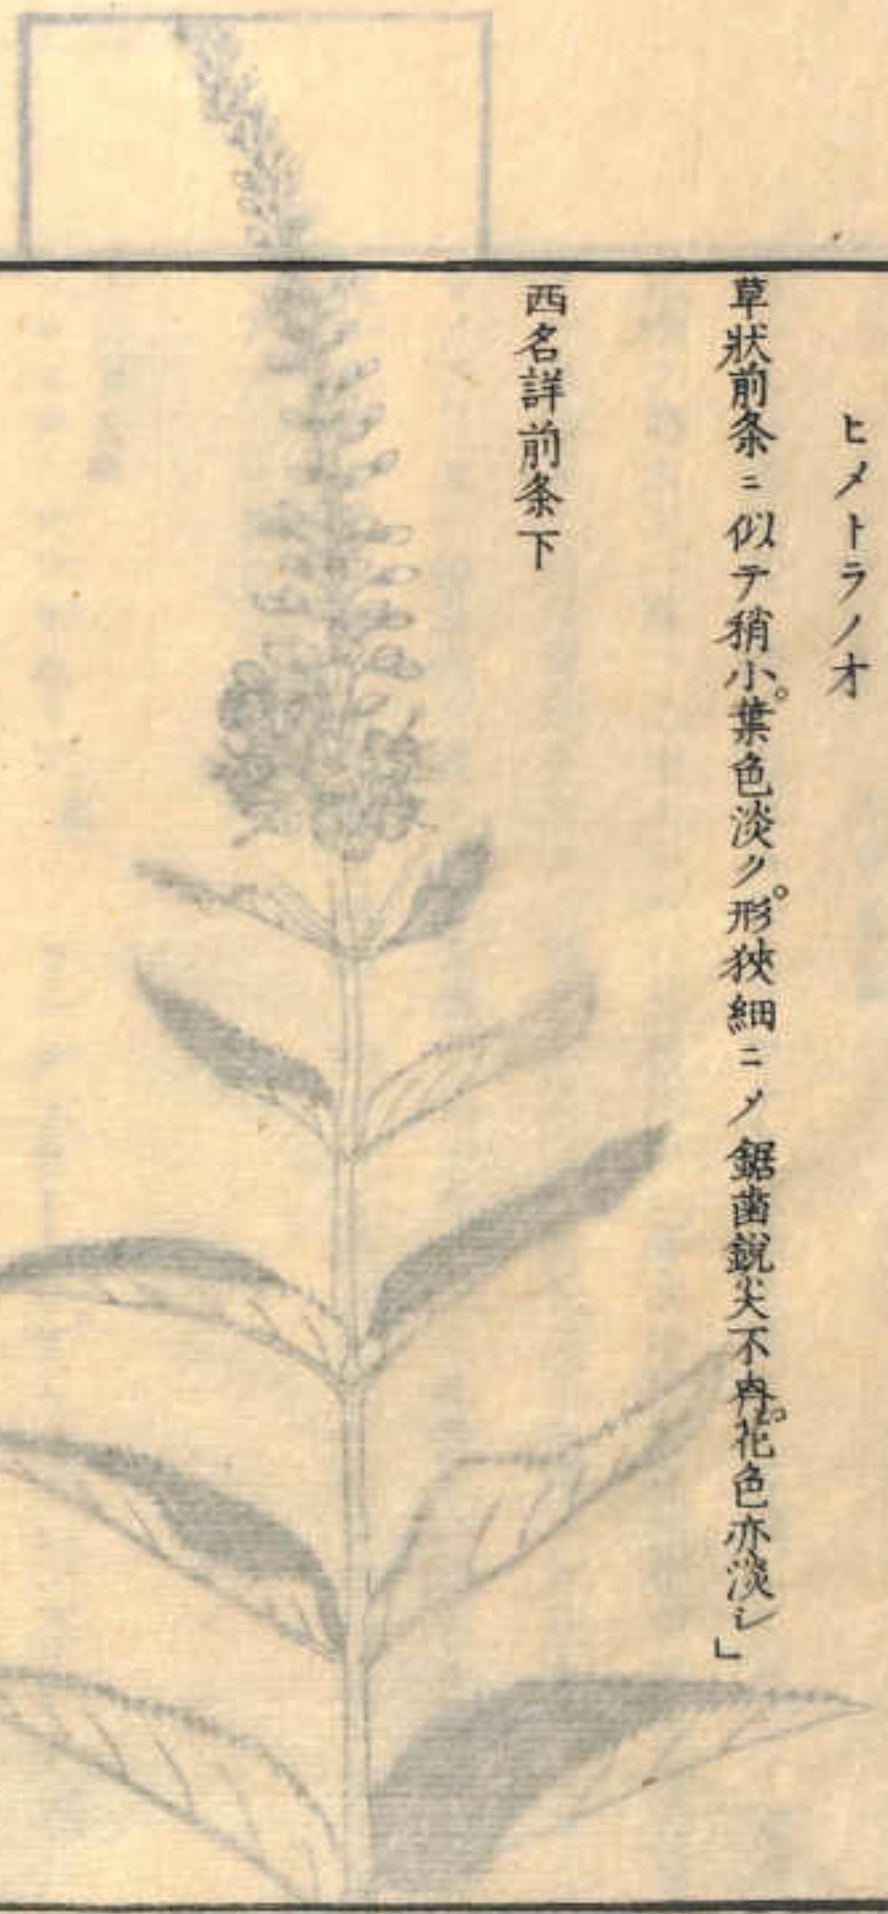 ヒメトラノオ
草狀前条ニ似テ稍小。葉色淡ク。形狹細ニメ鋸歯銳尖不冉。花色亦淡シ」
西名詳前条下